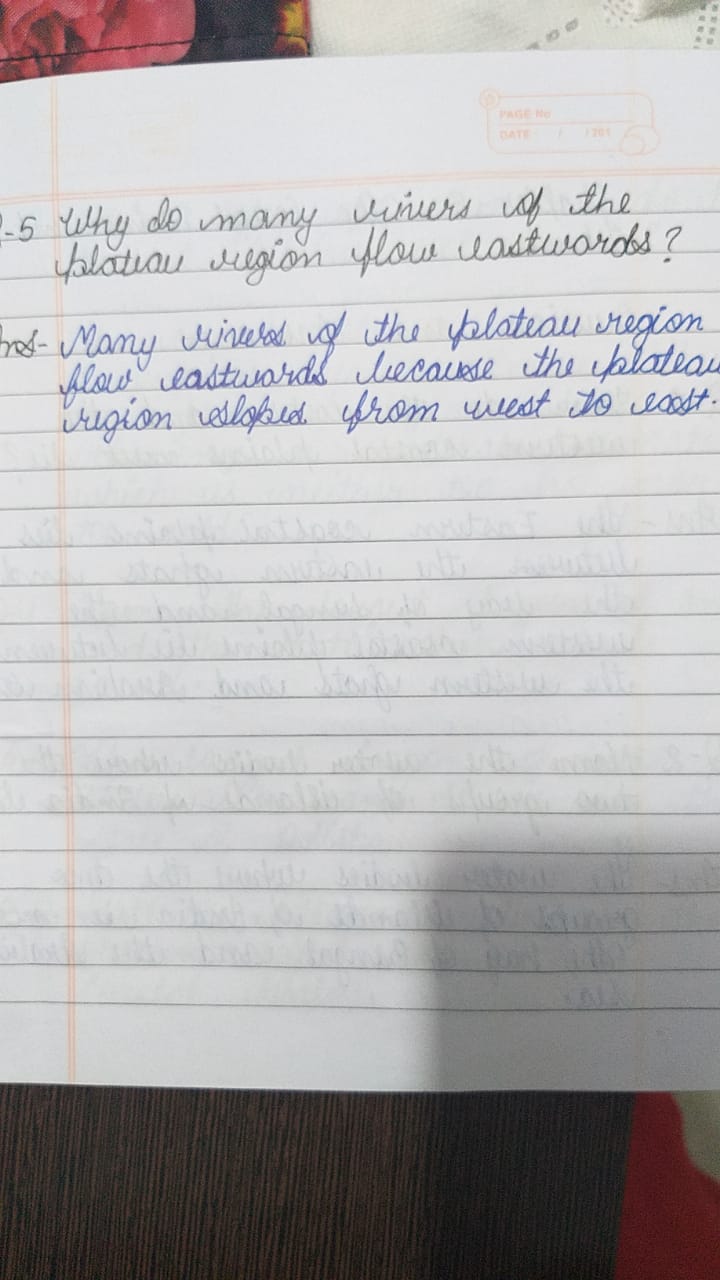 PAGE No
DATE / / 201
-5 Why do many rivers of the
plateau region flow eastwards?
Ans- Many rivers of the plateau region
flow eastwards because the plateau
region sloped from west to east.